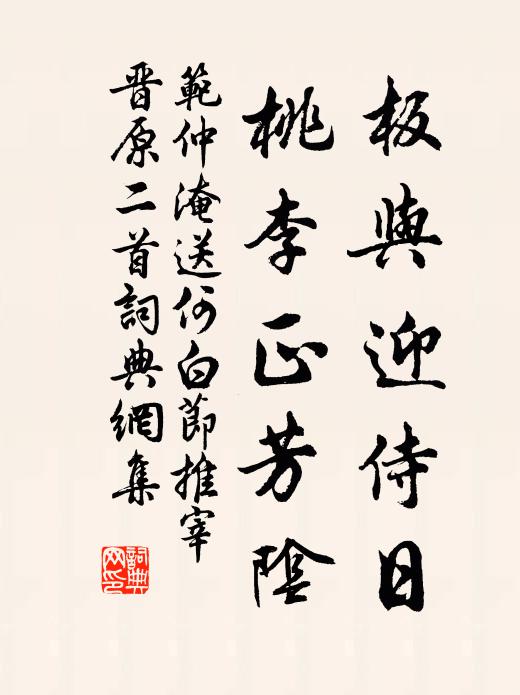 板輿迎侍日
桃李正芳陰
範仲淹送何白節推宰
晋原二首詞典網集
詞典
网印